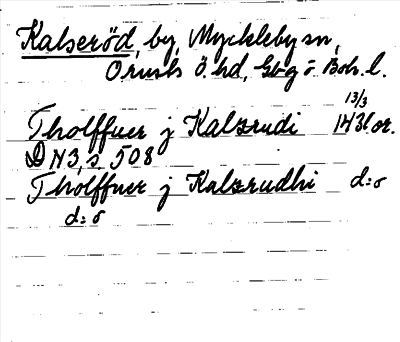 Kalseröd, by, Myckleby sn,
Orusts Ö. hd, Gbg o Boh. l.
13/3
Tholffuer j Kalzrudi 1431 or.
DN 3, s. 508
Tholffuer j Kalzrudhi d:o
d:o